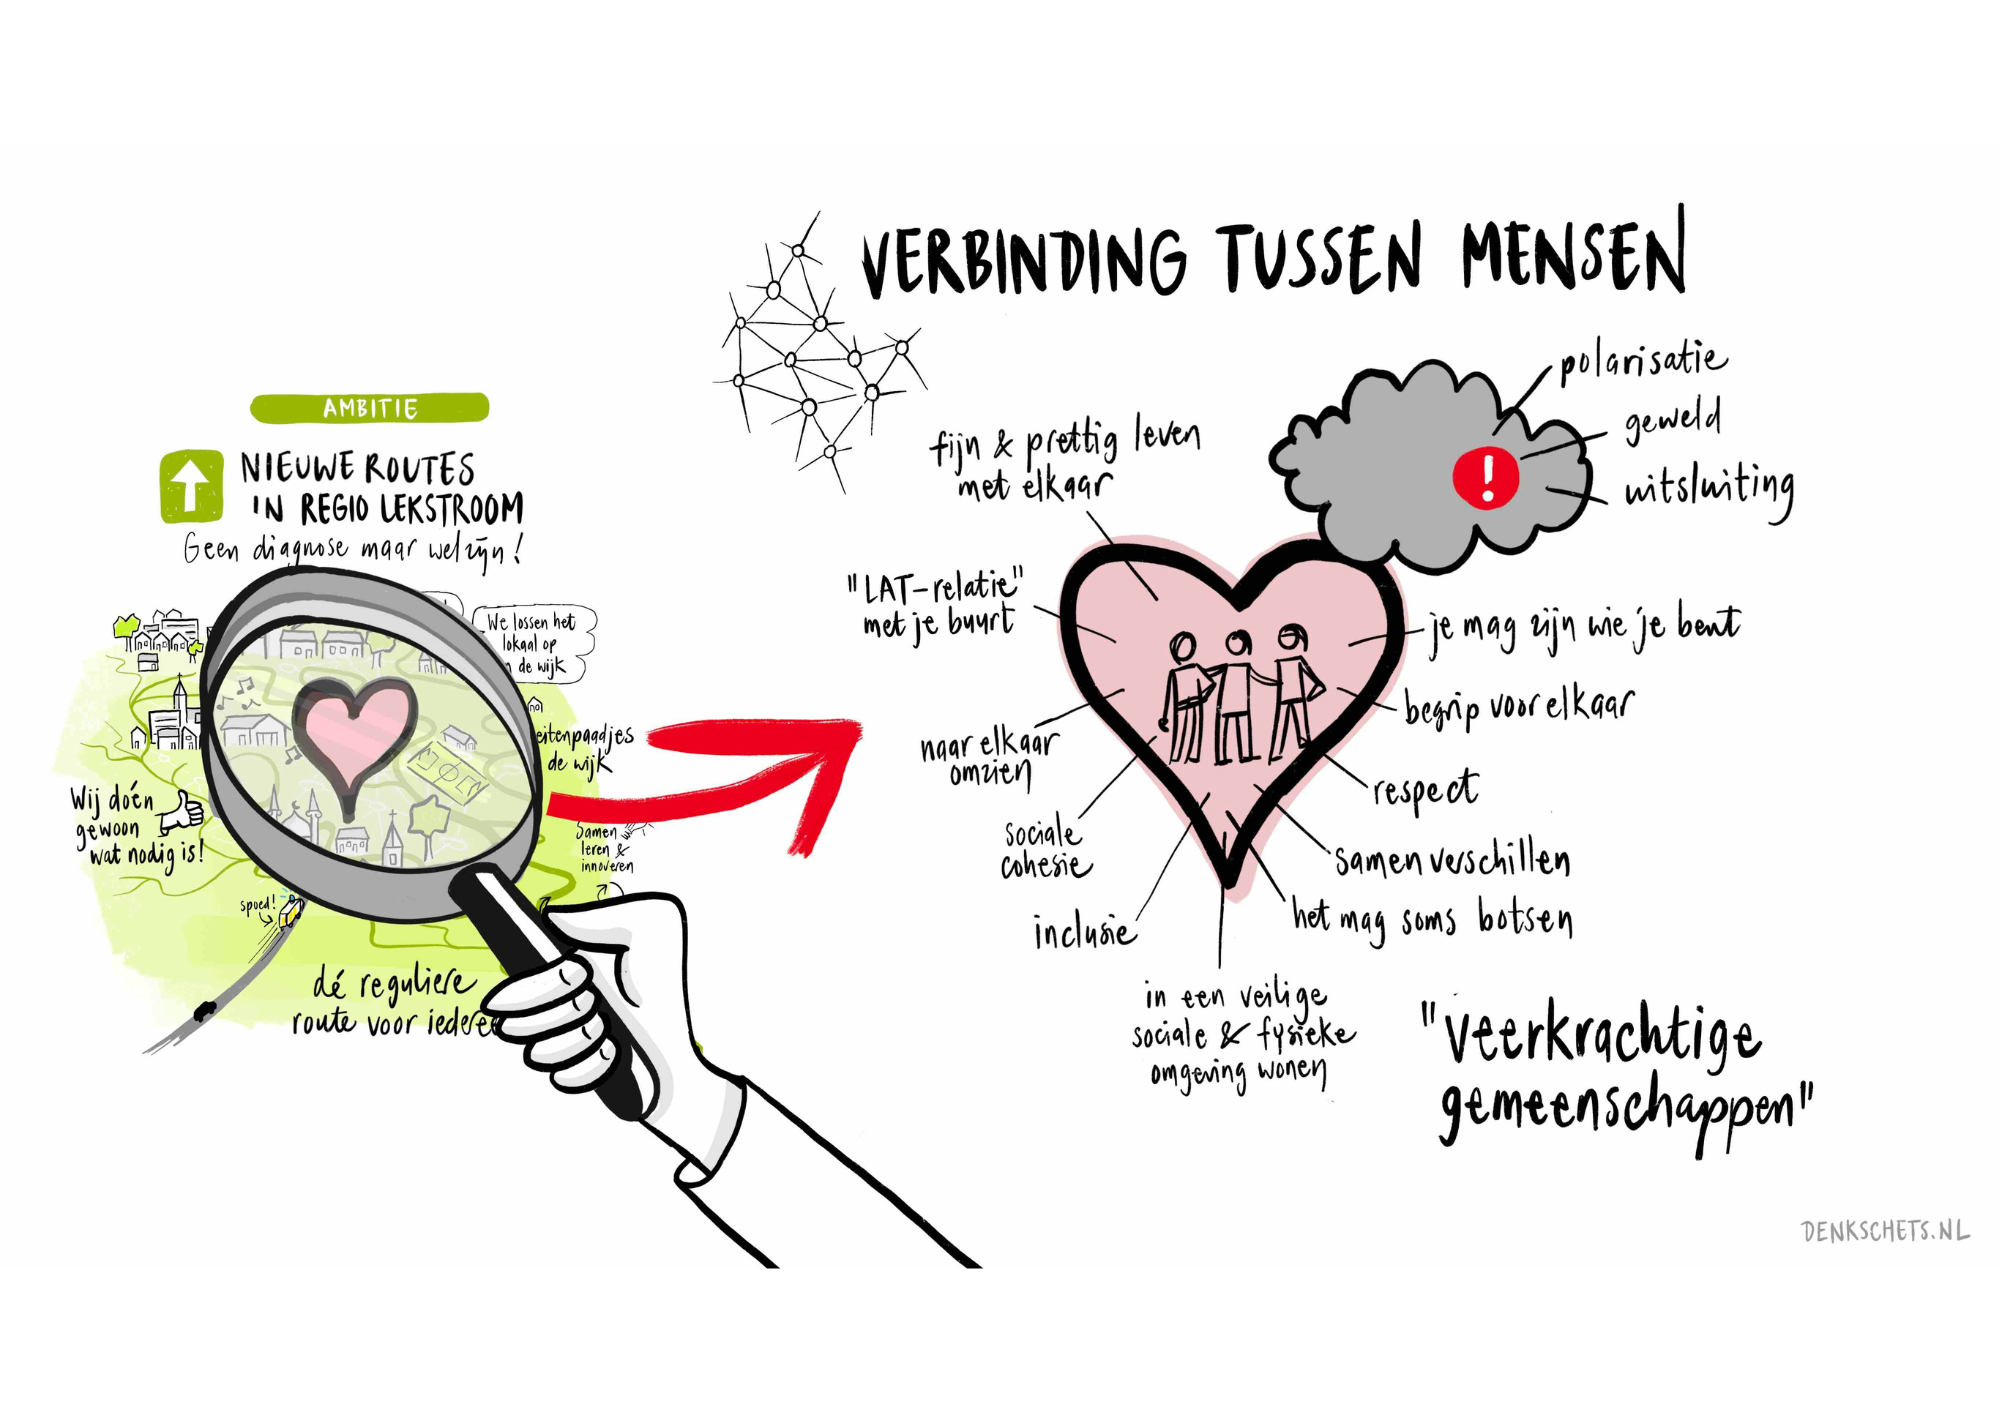 VERBINDING TUSSEN MENSEN
AMBITIE
NIEUWE ROUTES
IN REGIO LEKSTROOM
Geen diagnose maar welzijn!
We lossen het
lokaal op
de wijk
de wijk
Wij doén
gewoon
wat nodig is!
Samen
leren &
innoveren
spoed!
dé reguliere
route voor
polarisatie
geweld
uitsluiting
fijn & prettig leven
met elkaar
"LAT-relatie"
met je buurt
naar elkaar
omzien
sociale
cohesie
inclusie
in een veilige
sociale & fysieke
omgeving wonen
je mag zijn wie je bent
begrip voor elkaar
respect
samen verschillen
het mag soms botsen
"veerkrachtige
gemeenschappen"
DENKSCHETS.NL